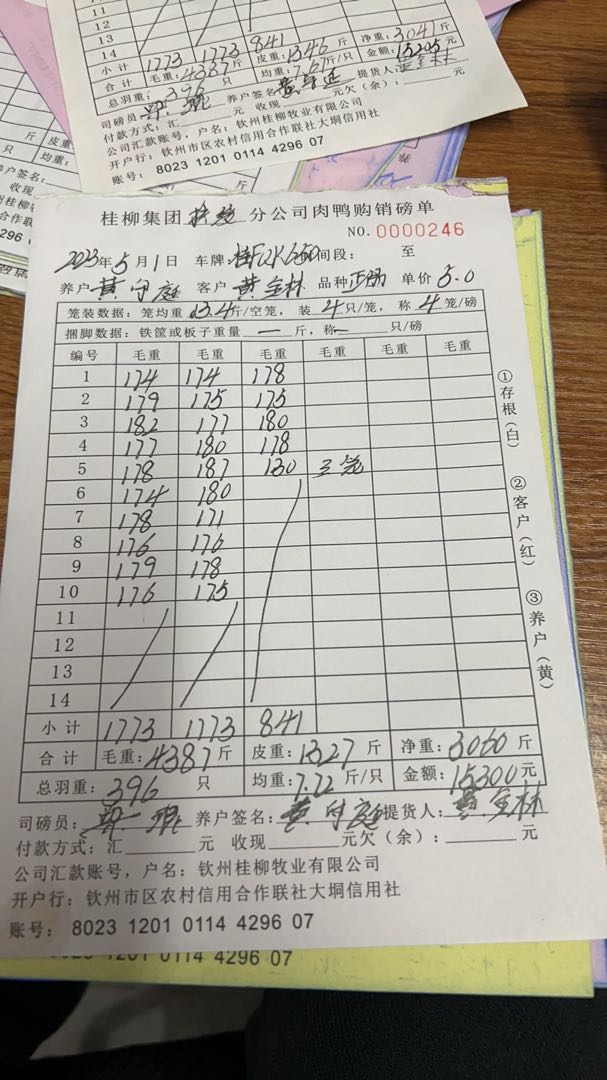 11
12
13
14
小计 1773 1773 841
合计 毛重:4387斤 皮重:1346斤 净重:3041斤
总羽重:396只 均重:7.67斤/只 金额:15205元
司磅员: 养户签名: 提货人:
付款方式:汇 元 收现 元欠(余): 元
公司汇款账号,户名:钦州桂柳牧业有限公司
开户行:钦州市区农村信用合作联社大垌信用社
账号: 8023 1201 0114 4296 07
桂柳集团 分公司肉鸭购销磅单
NO.0000246
2023年5月1日 车牌: 间段: 至
养户 黄守庭 客户 黄全林 品种 单价 5.0
笼装数据:笼均重13.4斤/空笼,装4只/笼,称4笼/磅
捆脚数据:铁筐或板子重量 一 斤,称 一 只/磅
编号 毛重 毛重 毛重 毛重 毛重 毛重
1 174 174 178
2 179 175 175
3 182 177 180
4 177 180 178
5 178 187 130 三笼
6 174 180
7 178 171
8 176 176
9 179 178
10 176 175
11
12
13
14
小计 1773 1773 841
合计 毛重:4387斤 皮重:1327斤 净重:3060斤
总羽重:396 只 均重:7.72斤/只 金额:15300元
司磅员: 养户签名:黄守庭 提货人:黄全林
付款方式:汇 元 收现 元欠(余): 元
公司汇款账号,户名:钦州桂柳牧业有限公司
开户行:钦州市区农村信用合作联社大垌信用社
账号: 8023 1201 0114 4296 07
①存根(白)
②客户(红)
③养户(黄)
1201 0114 4296 07